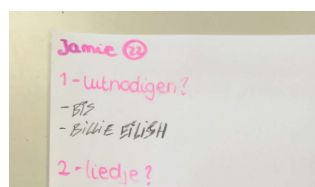 Jamie 22
1-uitnodigen?
- BTS
- BILLIE EILISH
2-liedje?